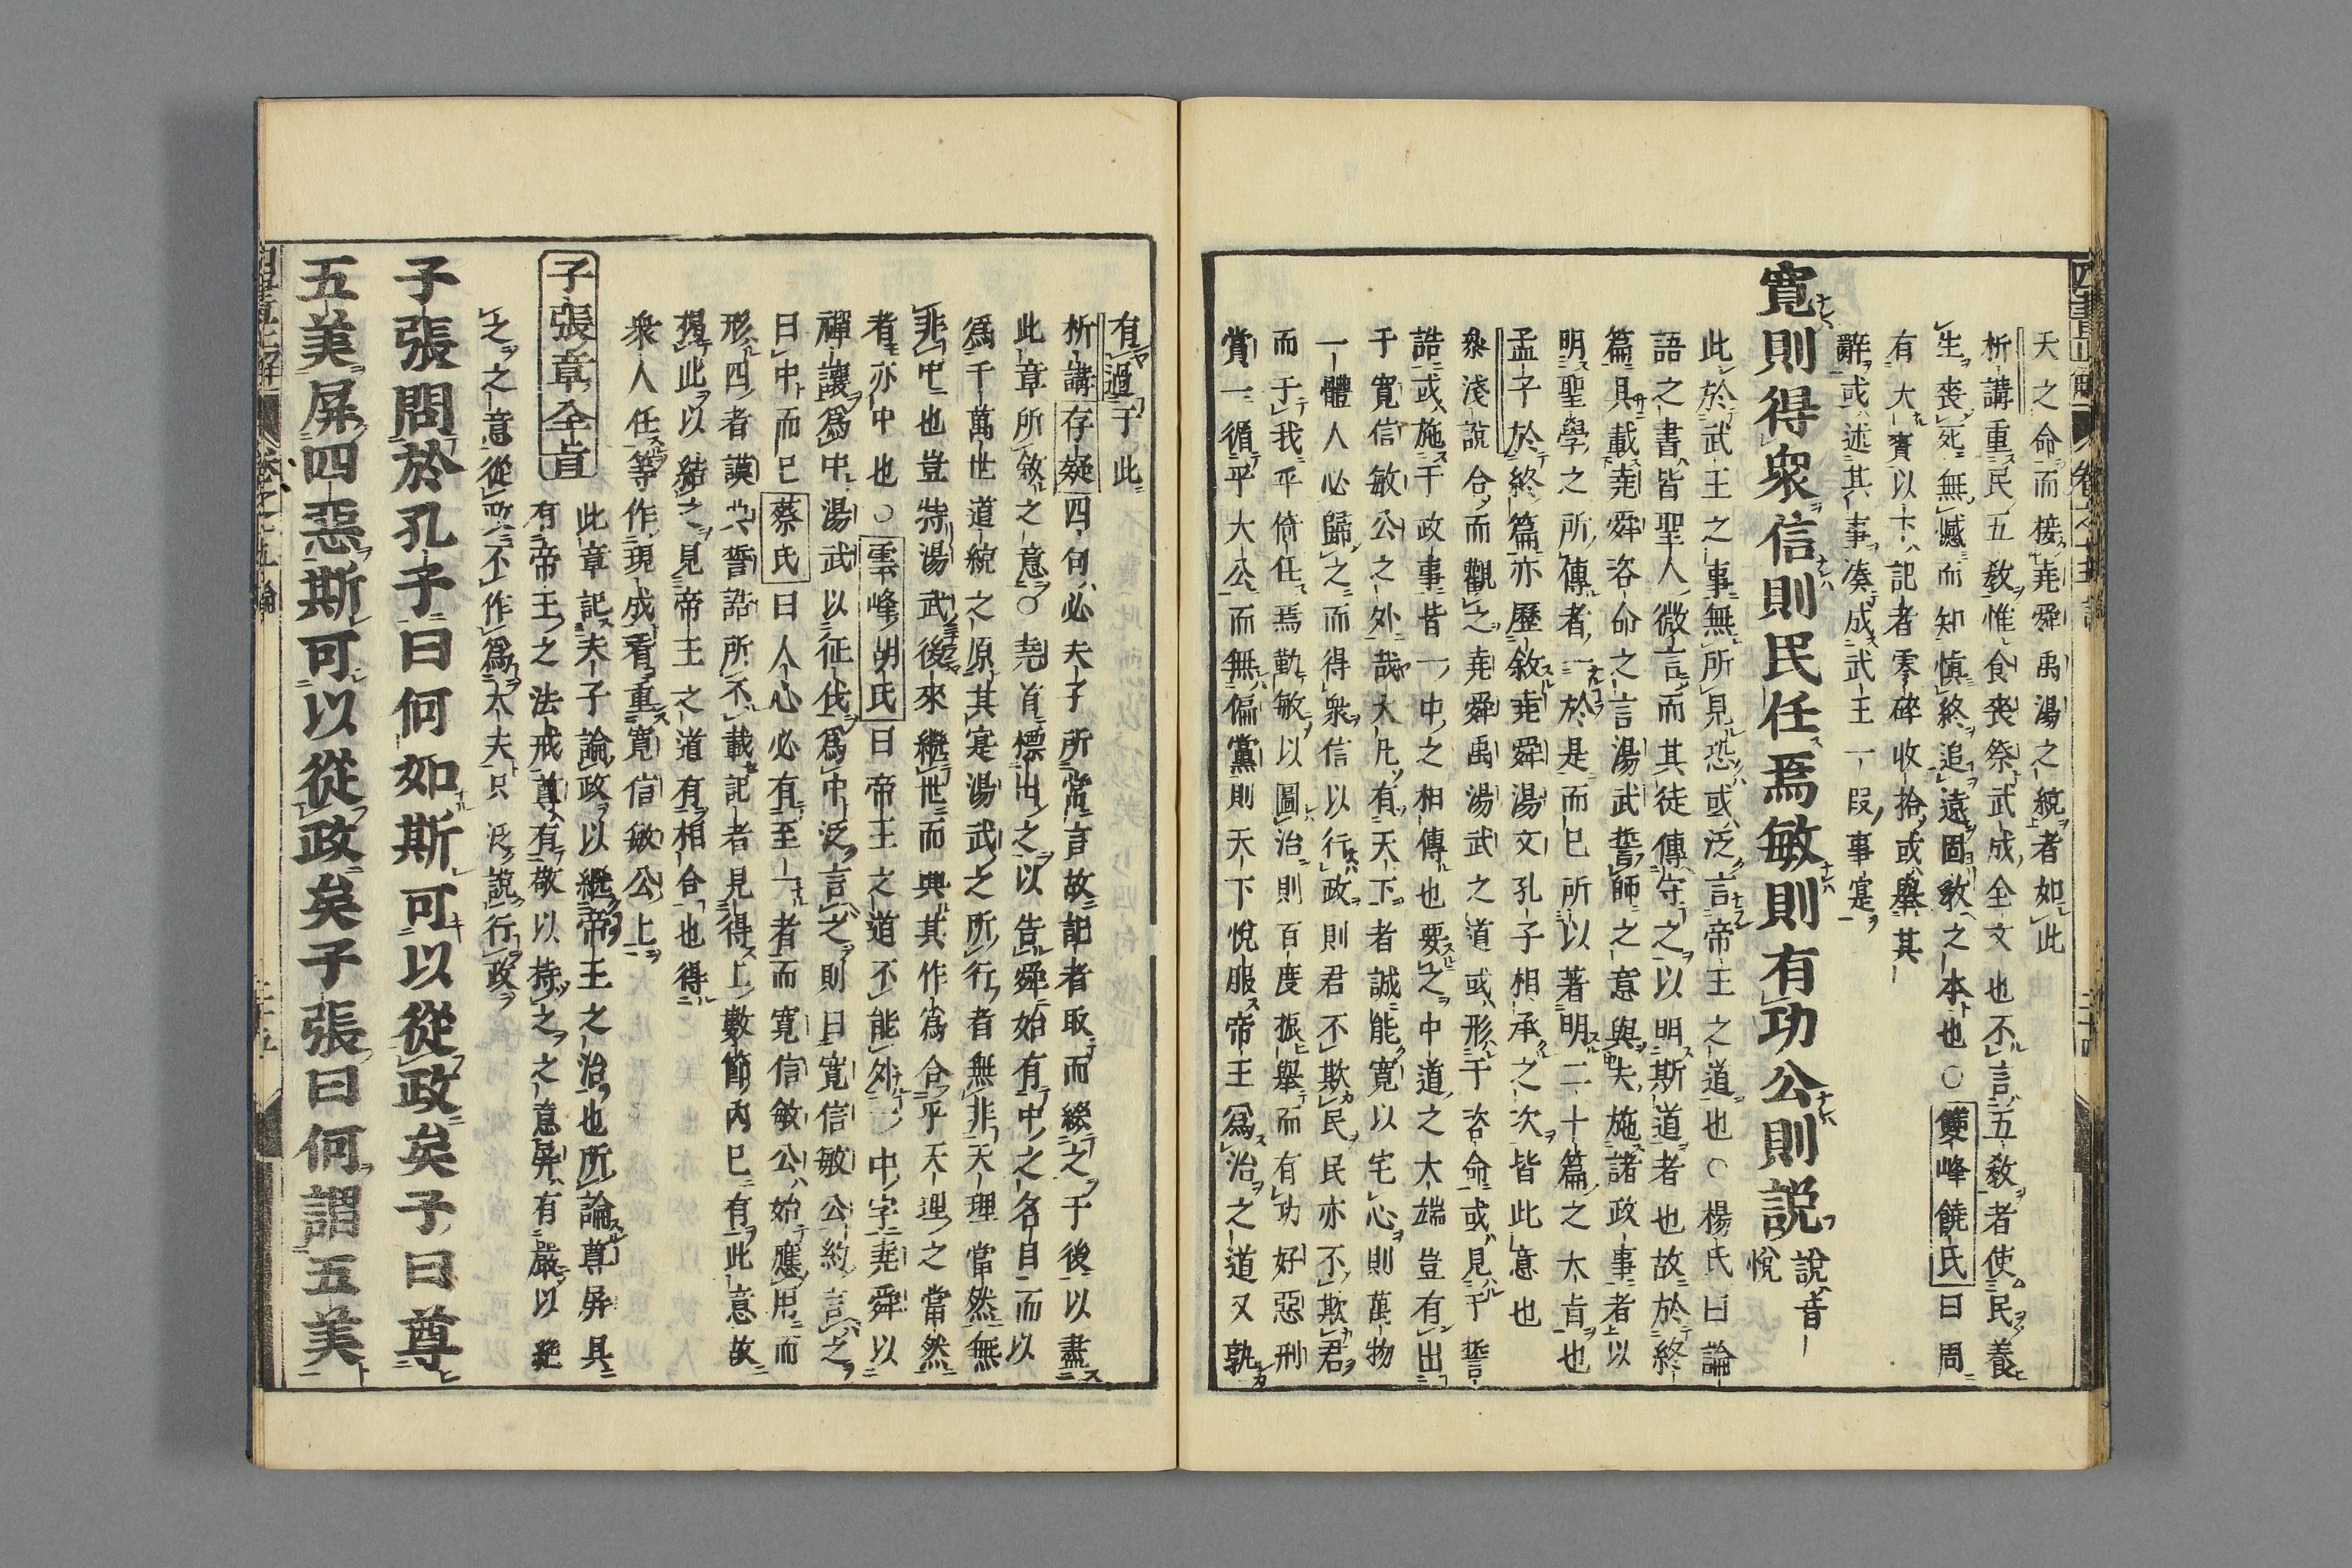 天之命而接堯舜禹湯之統者如此
析講重民五敎惟食喪祭武成全文也不言五敎者使民養
生喪死無憾而知愼終追遠固敎之本也○雙峰饒氏曰周
有大賚以下記者零碎收拾或擧其
辭或述其事湊成武王一段事寔
寬則得衆信則民任焉敏則有功公則説
説音
悅
此於武王之事無所見恐或泛言帝王之道也○楊氏曰論
語之書皆聖人微言而其徒傳守之以明斯道者也故於終
篇具載堯舜咨命之言湯武誓師之意與夫施諸政事者以
明聖學之所傳者一於是而已所以著明二十篇之大旨也
孟子於終篇亦歷敘堯舜湯文孔子相承之次皆此意也
衆淺說合而觀之堯舜禹湯武之道或形于咨命或見于誓
誥或施于政事皆一中之相傳也要之中道之大端豈有出
于寬信敏公之外哉大凡有天下者誠能寬以宅心則萬物
一體人必歸之而得衆信以行政則君不欺民民亦不欺君
而于我乎倚任焉勤敏以圖治則百度振擧而有功好惡刑
賞一循乎大公而無偏黨則天下悅服帝王爲治之道又孰
有過于此
析講存疑四句必夫子所常言故記者取而綴之于後以盡
此章所敘之意○堯首標出之以告舜始有中之名自而以
爲千萬世道統之原其寔湯武之所行者無非天理當然無
非中也豈特湯武後來繼世而興其作爲合乎天理之當然
者亦中也○雲峰胡氏曰帝王之道不能外一中字堯舜以
禪讓爲中湯武以征伐爲中泛言之則曰寬信敏公約言之
曰中而已蔡氏曰人心必有至一者而寬信敏公始應用而
形四者謨典誓誥所不載記者見得上數節內已有此意故
揭此以結之見帝王之道有相合也得
衆人任等作現成看重寬信敏公上
子張章全旨
此章記夫子論政以繼帝王之治也所論尊屏具
有帝王之法戒尊有敬以持之之意屏有嚴以絶
之之意從政不作爲大夫只泛說行政
子張問於孔子曰何如斯可以從政矣子曰尊
五美屏四惡斯可以從政矣子張曰何謂五美